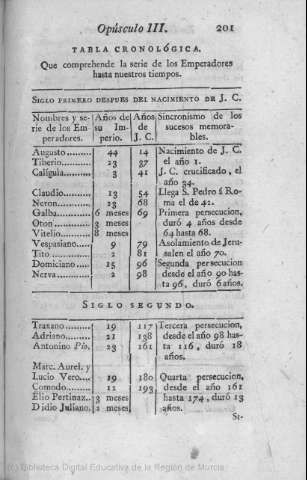 Opúsculo III. 201
TABLA CRONOLÓGICA.
Que comprehende la serie de los Emperadores
hasta nuestros tiempos.
SIGLO PRIMERO DESPUES DEL NACIMIENTO DE J. C.
Nombres y se- Años de Años Sincronismo de los
rie de los Em- su Im- de sucesos memora-
peradores. perio. J. C. bles.
Augusto.......... 44 14 Nacimiento de J. C.
Tiberio........... 23 37 el año 1.
Calígula.......... 3 41 J. C. crucificado, el
año 34.
Claudio........... 13 54 Llega S. Pedro á Ro-
Neron............. 13 68 ma el de 42.
Galba............. 6 meses 69 Primera persecucion,
Oton.............. 3 meses duró 4 años desde
Vitelio........... 8 meses 64 hasta 68.
Vespasiano..... 9 79 Asolamiento de Jeru-
Tito.............. 2 81 salen el año 70.
Domiciano..... 15 96 Segunda persecucion
Nerva............ 2 98 desde el año 90 has-
ta 96, duró 6 años.
SIGLO SEGUNDO.
Traxano......... 19 117 Tercera persecucion,
Adriano.......... 21 138 desde el año 98 has-
Antonino Pio. 23 161 ta 116, duró 18
años.
Marc. Aurel. y
Lucio Vero.... 19 180 Quarta persecucion,
Comodo.......... 12 193 desde el año 161
Elio Pertinaz.. 3 meses hasta 174, duró 13
Didio Juliano. 2 meses años.
SI-
(c) Biblioteca Digital Educativa de la Región de Murcia